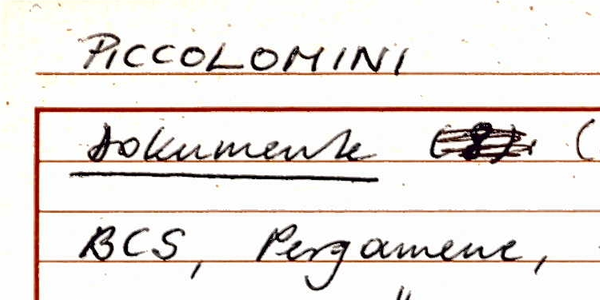 PICCOLOMINI
Dokumente (
BCS, Pergamene,
"